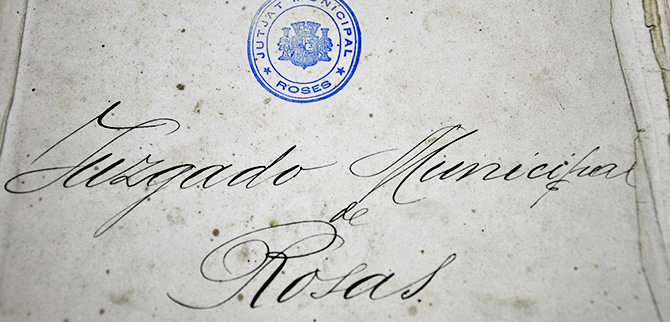 JUTJAT MUNICIPAL
★ ROSES ★
Juzgado Municipal
de
Rosas